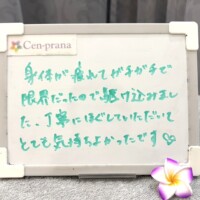 Cen-prana
身体が疲れてガチガチで
限界だったので駆け込みまし
た。丁寧にほぐしていただいて
とても気持ちよかったです♡